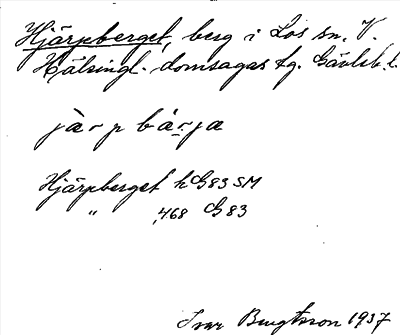 Hjärpberget, berg i Los sn. V.
Hälsingl. domsagas tg. Gävleb. l.
jàrp bárja
Hjärpberget h G 83 SM
" 468 G 83
Ivar Bengtsson 1937